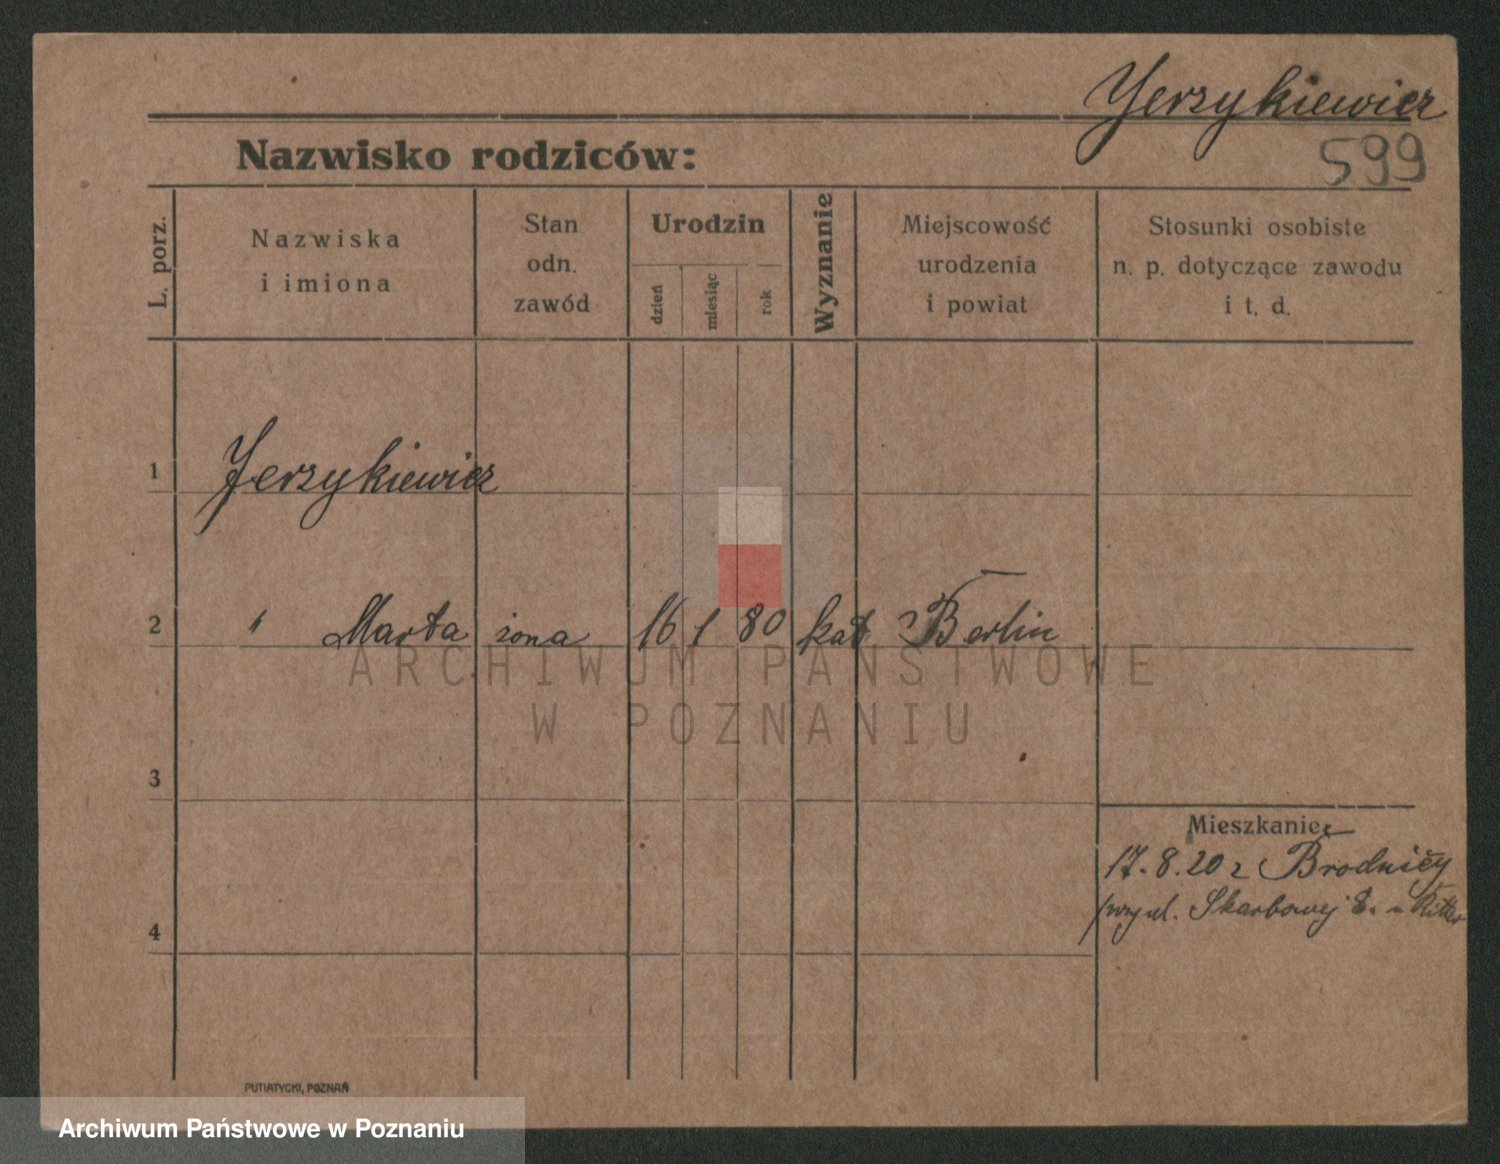 Jerzykiewicz
599
Nazwisko rodziców:
L. porz.
Nazwiska
i imiona
Stan
odn.
zawód
Urodzin
dzień
miesiąc
rok
Wyznanie
Miejscowość
urodzenia
i powiat
Stosunki osobiste
n. p. dotyczące zawodu
i t. d.
1 Jerzykiewicz
2 " Marta żona 16 1 80 kat Berlin
ARCHIWUM PAŃSTWOWE
W POZNANIU
3
Mieszkanie:
17.8.20 z Brodnicy
przy ul. Skarbowej 8. u Ritter
4
PUTIATYCKI, POZNAŃ
Archiwum Państwowe w Poznaniu